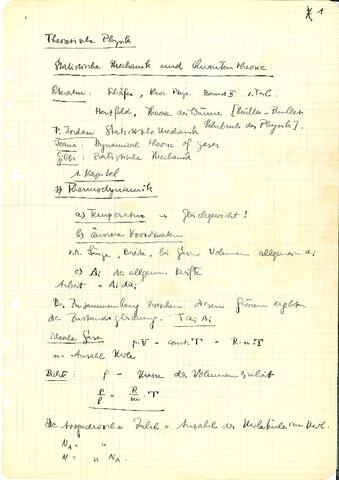 1
Theoretische Physik
Statistische Mechanik und Quantentheorie
Literatur: Schäfer, Theor. Phys. Band II 1. Teil
Herzfeld, Theorie der Wärme [Müller-Pouillet
Lehrbuch der Physik].
P. Jordan Statistische Mechanik
Jeans: Dynamical Theorie of gases
Gibbs: Statistische Mechanik
1. Kapitel
Thermodynamik
a) Temperatur Gleichgewicht!
b) äussere Koordinaten
z.B. Länge, Breite, bei Gasen Volumen allgemein ai
c) Ai die allgem. Kräfte
Arbeit = Ai dai
Der Zusammenhang zwischen diesen Grössen ergibt
die Zustandsgleichung. T ai Ai
ideale Gase p.V = const. T = R.n.T
n = Anzahl Mole
Dichte: ρ = Masse der Volumeneinheit
p/ρ = R/m . T
Die Avogadrosche Zahl = Anzahl der Moleküle im Mol.
NA = "
N = n. NA.